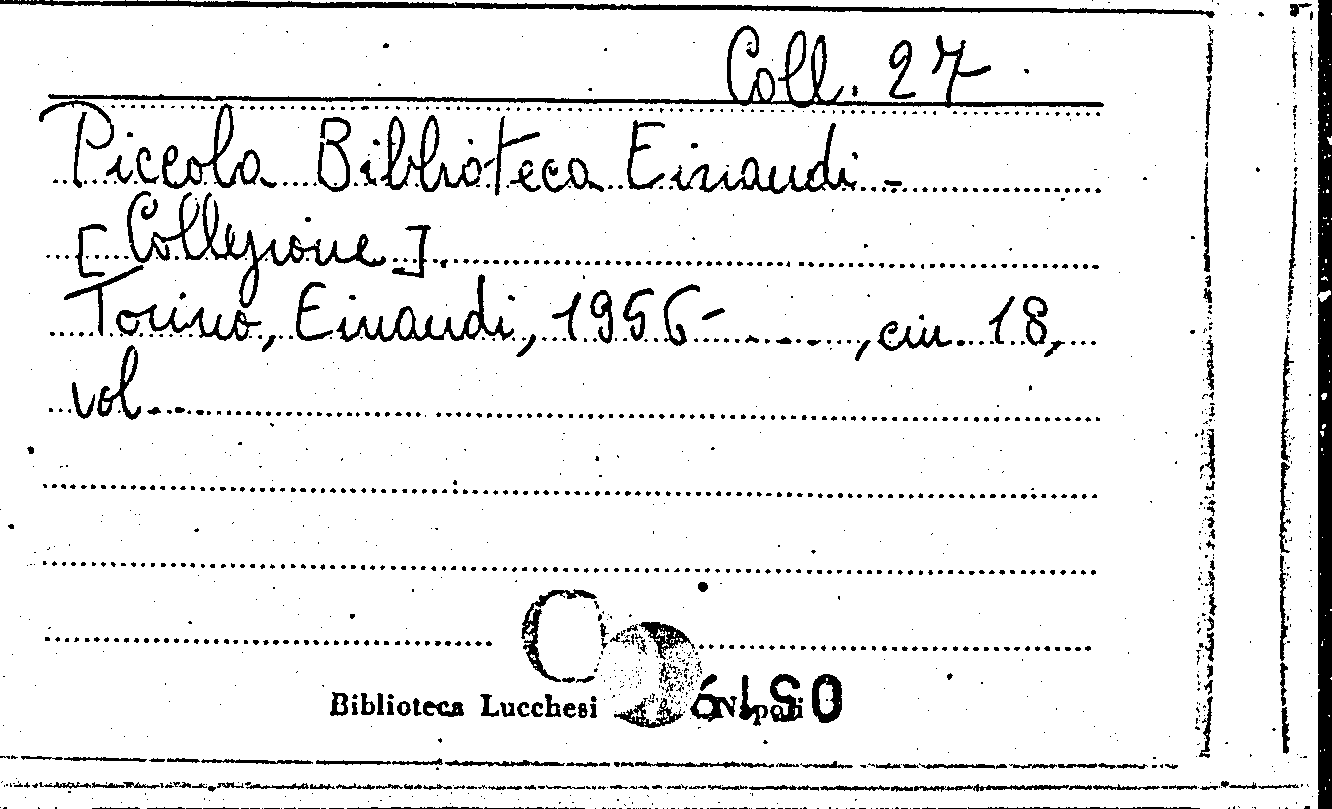 Coll. 27
Piccola Biblioteca Einaudi -
[Collezione].
Torino, Einaudi, 1956- ...., cm. 18,
vol....
Biblioteca Lucchesi Napoli